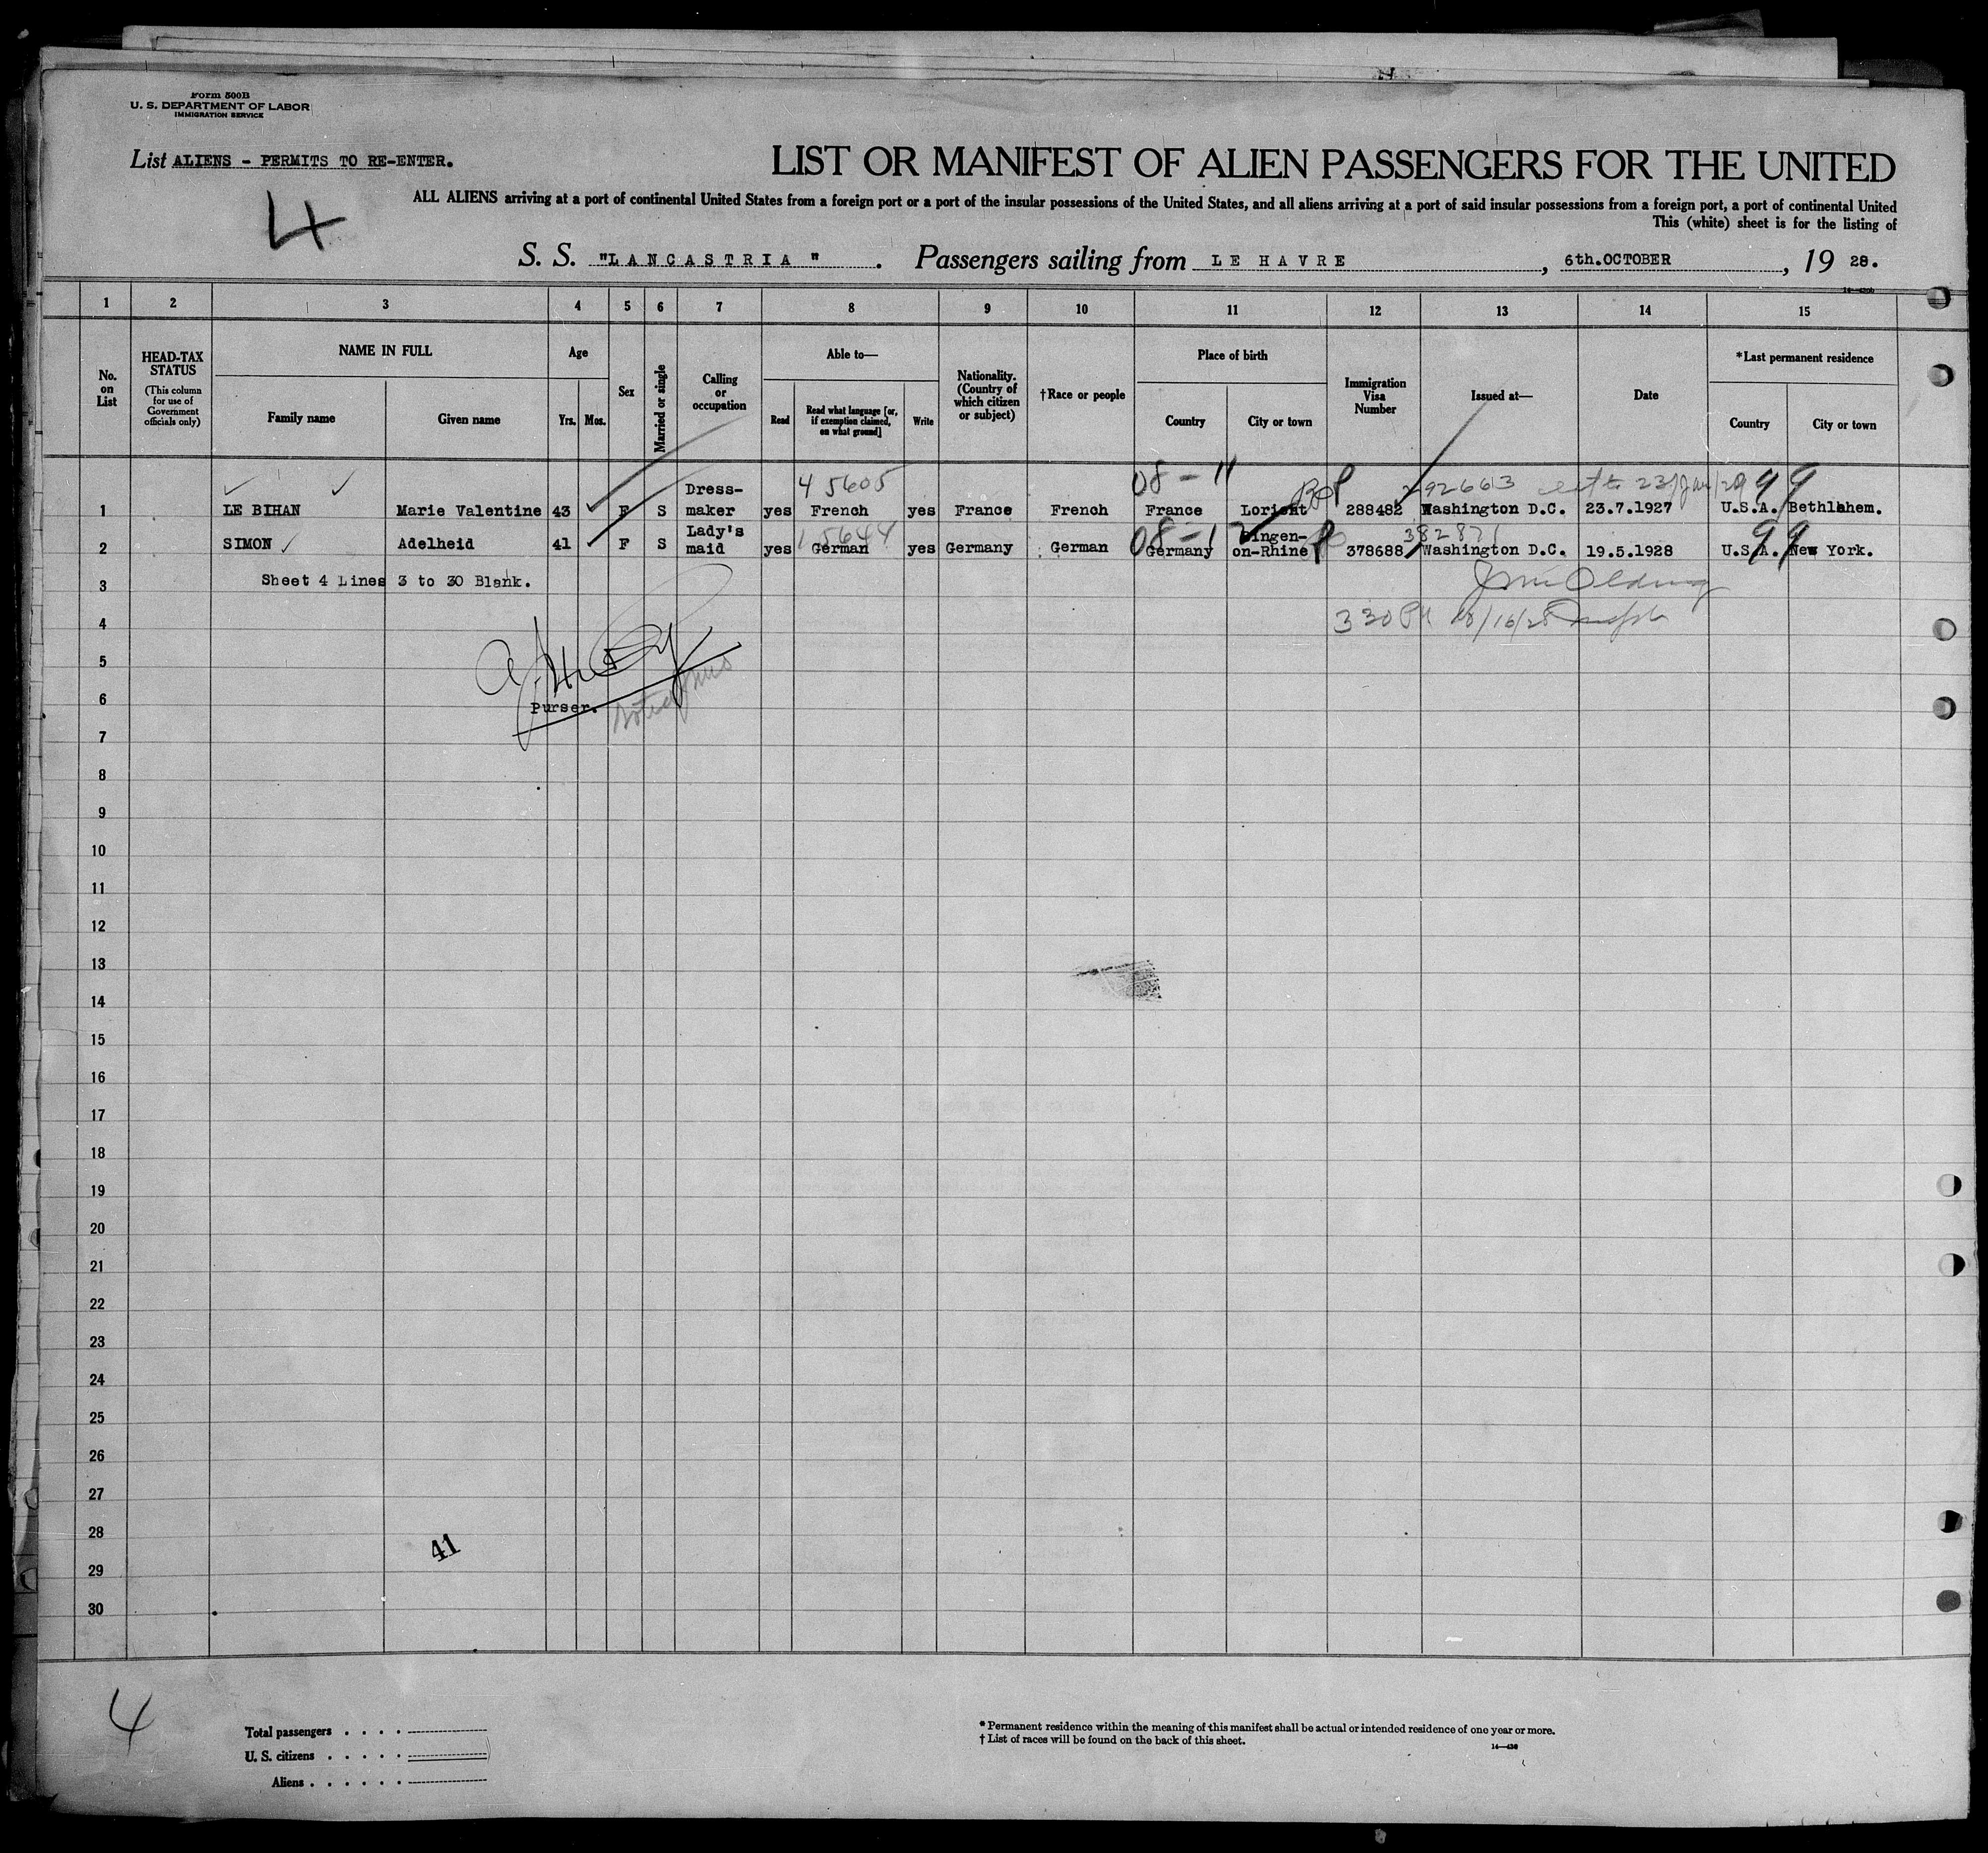 Form 500B
U. S. DEPARTMENT OF LABOR
IMMIGRATION SERVICE
List ALIENS - PERMITS TO RE-ENTER.
4
LIST OR MANIFEST OF ALIEN PASSENGERS FOR THE UNITED
ALL ALIENS arriving at a port of continental United States from a foreign port or a port of the insular possessions of the United States, and all aliens arriving at a port of said insular possessions from a foreign port, a port of continental United
This (white) sheet is for the listing of
S. S. "LANCASTRIA". Passengers sailing from LE HAVRE, 6th.OCTOBER, 19 28.
1 2 3 4 5 6 7 8 9 10 11 12 13 14 15
No. on List
HEAD-TAX STATUS
(This column for use of Government officials only)
NAME IN FULL
Family name Given name
Age
Yrs. Mos.
Sex
Married or single
Calling or occupation
Able to—
Read Read what language [or, if exemption claimed, on what ground] Write
Nationality. (Country of which citizen or subject)
†Race or people
Place of birth
Country City or town
Immigration Visa Number
Issued at—
Date
*Last permanent residence
Country City or town
45605 08-11 292663 23/Jan/29 99
1 LE BIHAN Marie Valentine 43 F S Dress-maker yes French yes France French France Lorient 288482 Washington D.C. 23.7.1927 U.S.A. Bethlehem.
15644 08-1 382871 99
2 SIMON Adelheid 41 F S Lady's maid yes German yes Germany German Germany Bingen-on-Rhine 378688 Washington D.C. 19.5.1928 U.S.A. New York.
3 Sheet 4 Lines 3 to 30 Blank.
4 330 PM 10/16/28
5
6 Purser.
7
8
9
10
11
12
13
14
15
16
17
18
19
20
21
22
23
24
25
26
27
28
41
29
30
4
Total passengers
U. S. citizens
Aliens
* Permanent residence within the meaning of this manifest shall be actual or intended residence of one year or more.
† List of races will be found on the back of this sheet.